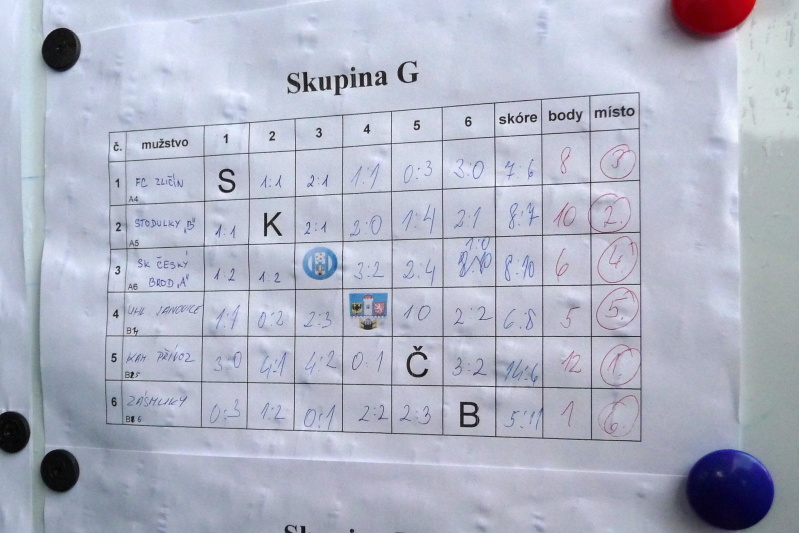 Skupina G
č. mužstvo 1 2 3 4 5 6 skóre body místo
1 FC ZLIČÍN A4 S 1:1 2:1 1:1 0:3 3:0 7:6 8 3
2 STODULKY „B" A5 1:1 K 2:1 2:0 1:4 2:1 8:7 10 2.
3 SK ČESKÝ BROD „A" A6 1:2 1:2 3:2 2:4 1:0 8:10 6 4
4 UHL JANOVICE 1:1 0:2 2:3 1:0 2:2 6:8 5 5.
5 KAM PŘÍVOZ 3:0 4:1 4:2 0:1 Č 3:2 14:6 12 1.
6 ZÁSMUKY 0:3 1:2 0:1 2:2 2:3 B 5:11 1 6.